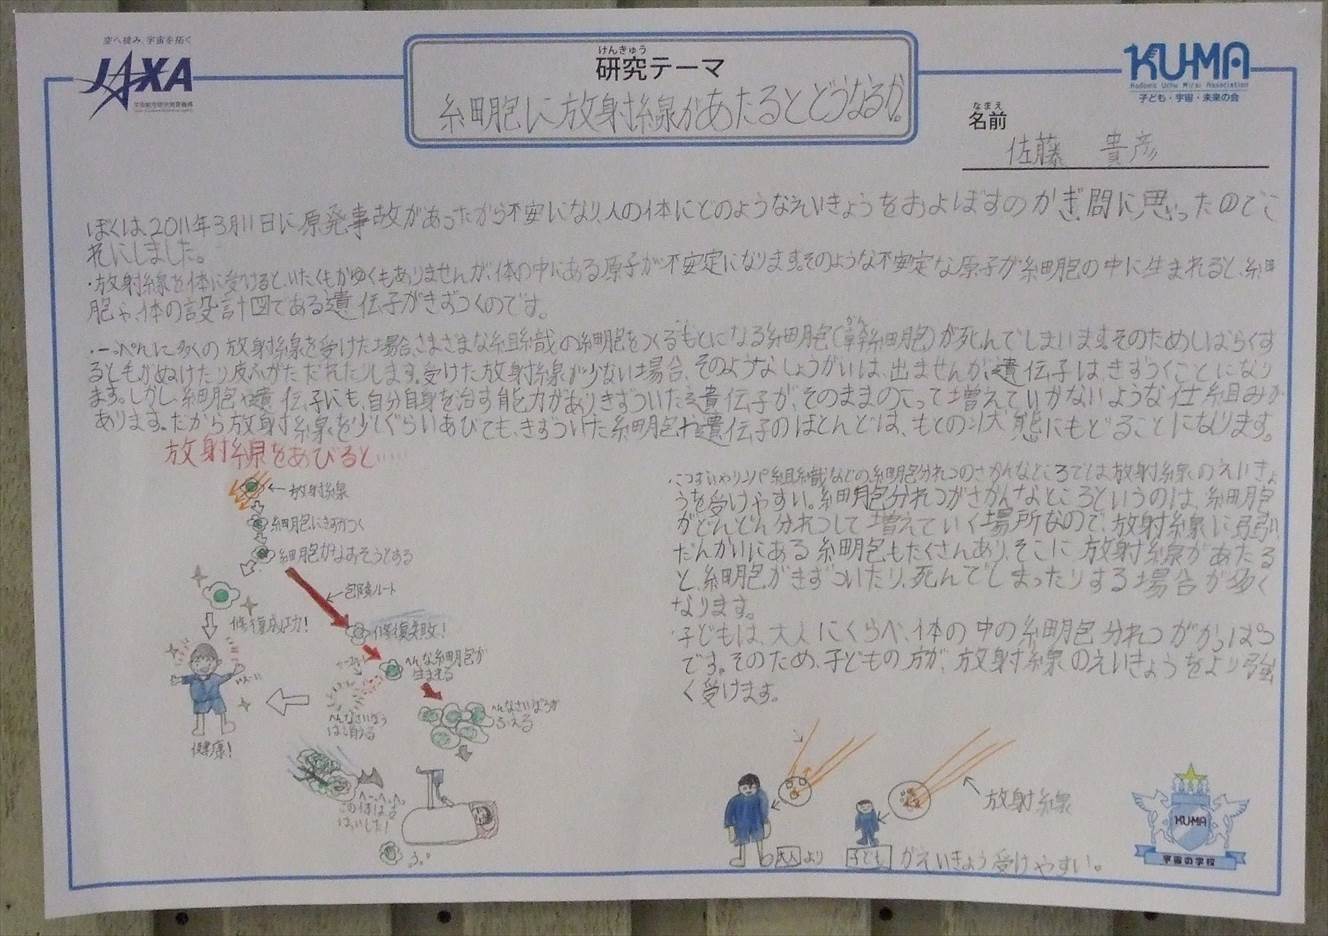 空へ挑み、宇宙を拓く
JAXA
宇宙航空研究開発機構
けんきゅう
研究テーマ
細胞に放射線があたるとどうなるか。
KU-MA
Kodomo Uchu Mirai Association
子ども・宇宙・未来の会
なまえ
名前
佐藤 貴彦
ぼくは、2011年3月11日に原発事故があったから不安になり、人の体にどのようなえいきょうをおよぼすのかぎ問に思ったのでこ
れにしました。
・放射線を体に受けると、いたくもかゆくもありませんが、体の中にある原子が不安定になります。そのような不安定な原子が細胞の中に生まれると、細
胞や、体の設計図である遺伝子がきずつくのです。
・一ぺんに多くの放射線を受けた場合、さまざまな組織の細胞をつくるもとになる細胞(幹細胞)が死んでしまいます。そのためしばらくす
かん
るともがぬけたり皮ふがただれたりします。受けた放射線が少ない場合、そのようなしょうがいは、出ませんが遺伝子はきずつくことになり
ます。しかし、細胞や遺伝子にも自分自身を治す能力がありきずついた遺伝子が、そのままのこって増えていかないような仕組みが
あります。だから放射線を少しぐらいあびても、きずついた細胞や遺伝子のほとんどは、もとの状態にもどることになります。
放射線をあびると……
放射線
細胞にきずがつく
細胞がなおそうとする
危険ルート
修復成功!
修復失敗!
へんな細胞が
生まれる
へんなさいぼうが
ふえる
へんなさいぼう
は消える
健康!
この体は
はいした!
・こつずいやリンパ組織などの細胞分れつのさかんなところでは放射線のえいきょ
うを受けやすい。細胞分れつがさかんなところというのは、細胞
がどんどん分れつして増えていく場所なので、放射線に弱い
だんかいにある細胞もたくさんあり、そこに放射線があたる
と、細胞がきずついたり、死んでしまったりする場合が多く
なります。
・子どもは、大人にくらべ、体の中の細胞分れつがかっぱつ
です。そのため、子どもの方が、放射線のえいきょうをより強
く受けます。
放射線
大人より 子どもがえいきょう受けやすい。
KU-MA
宇宙の学校